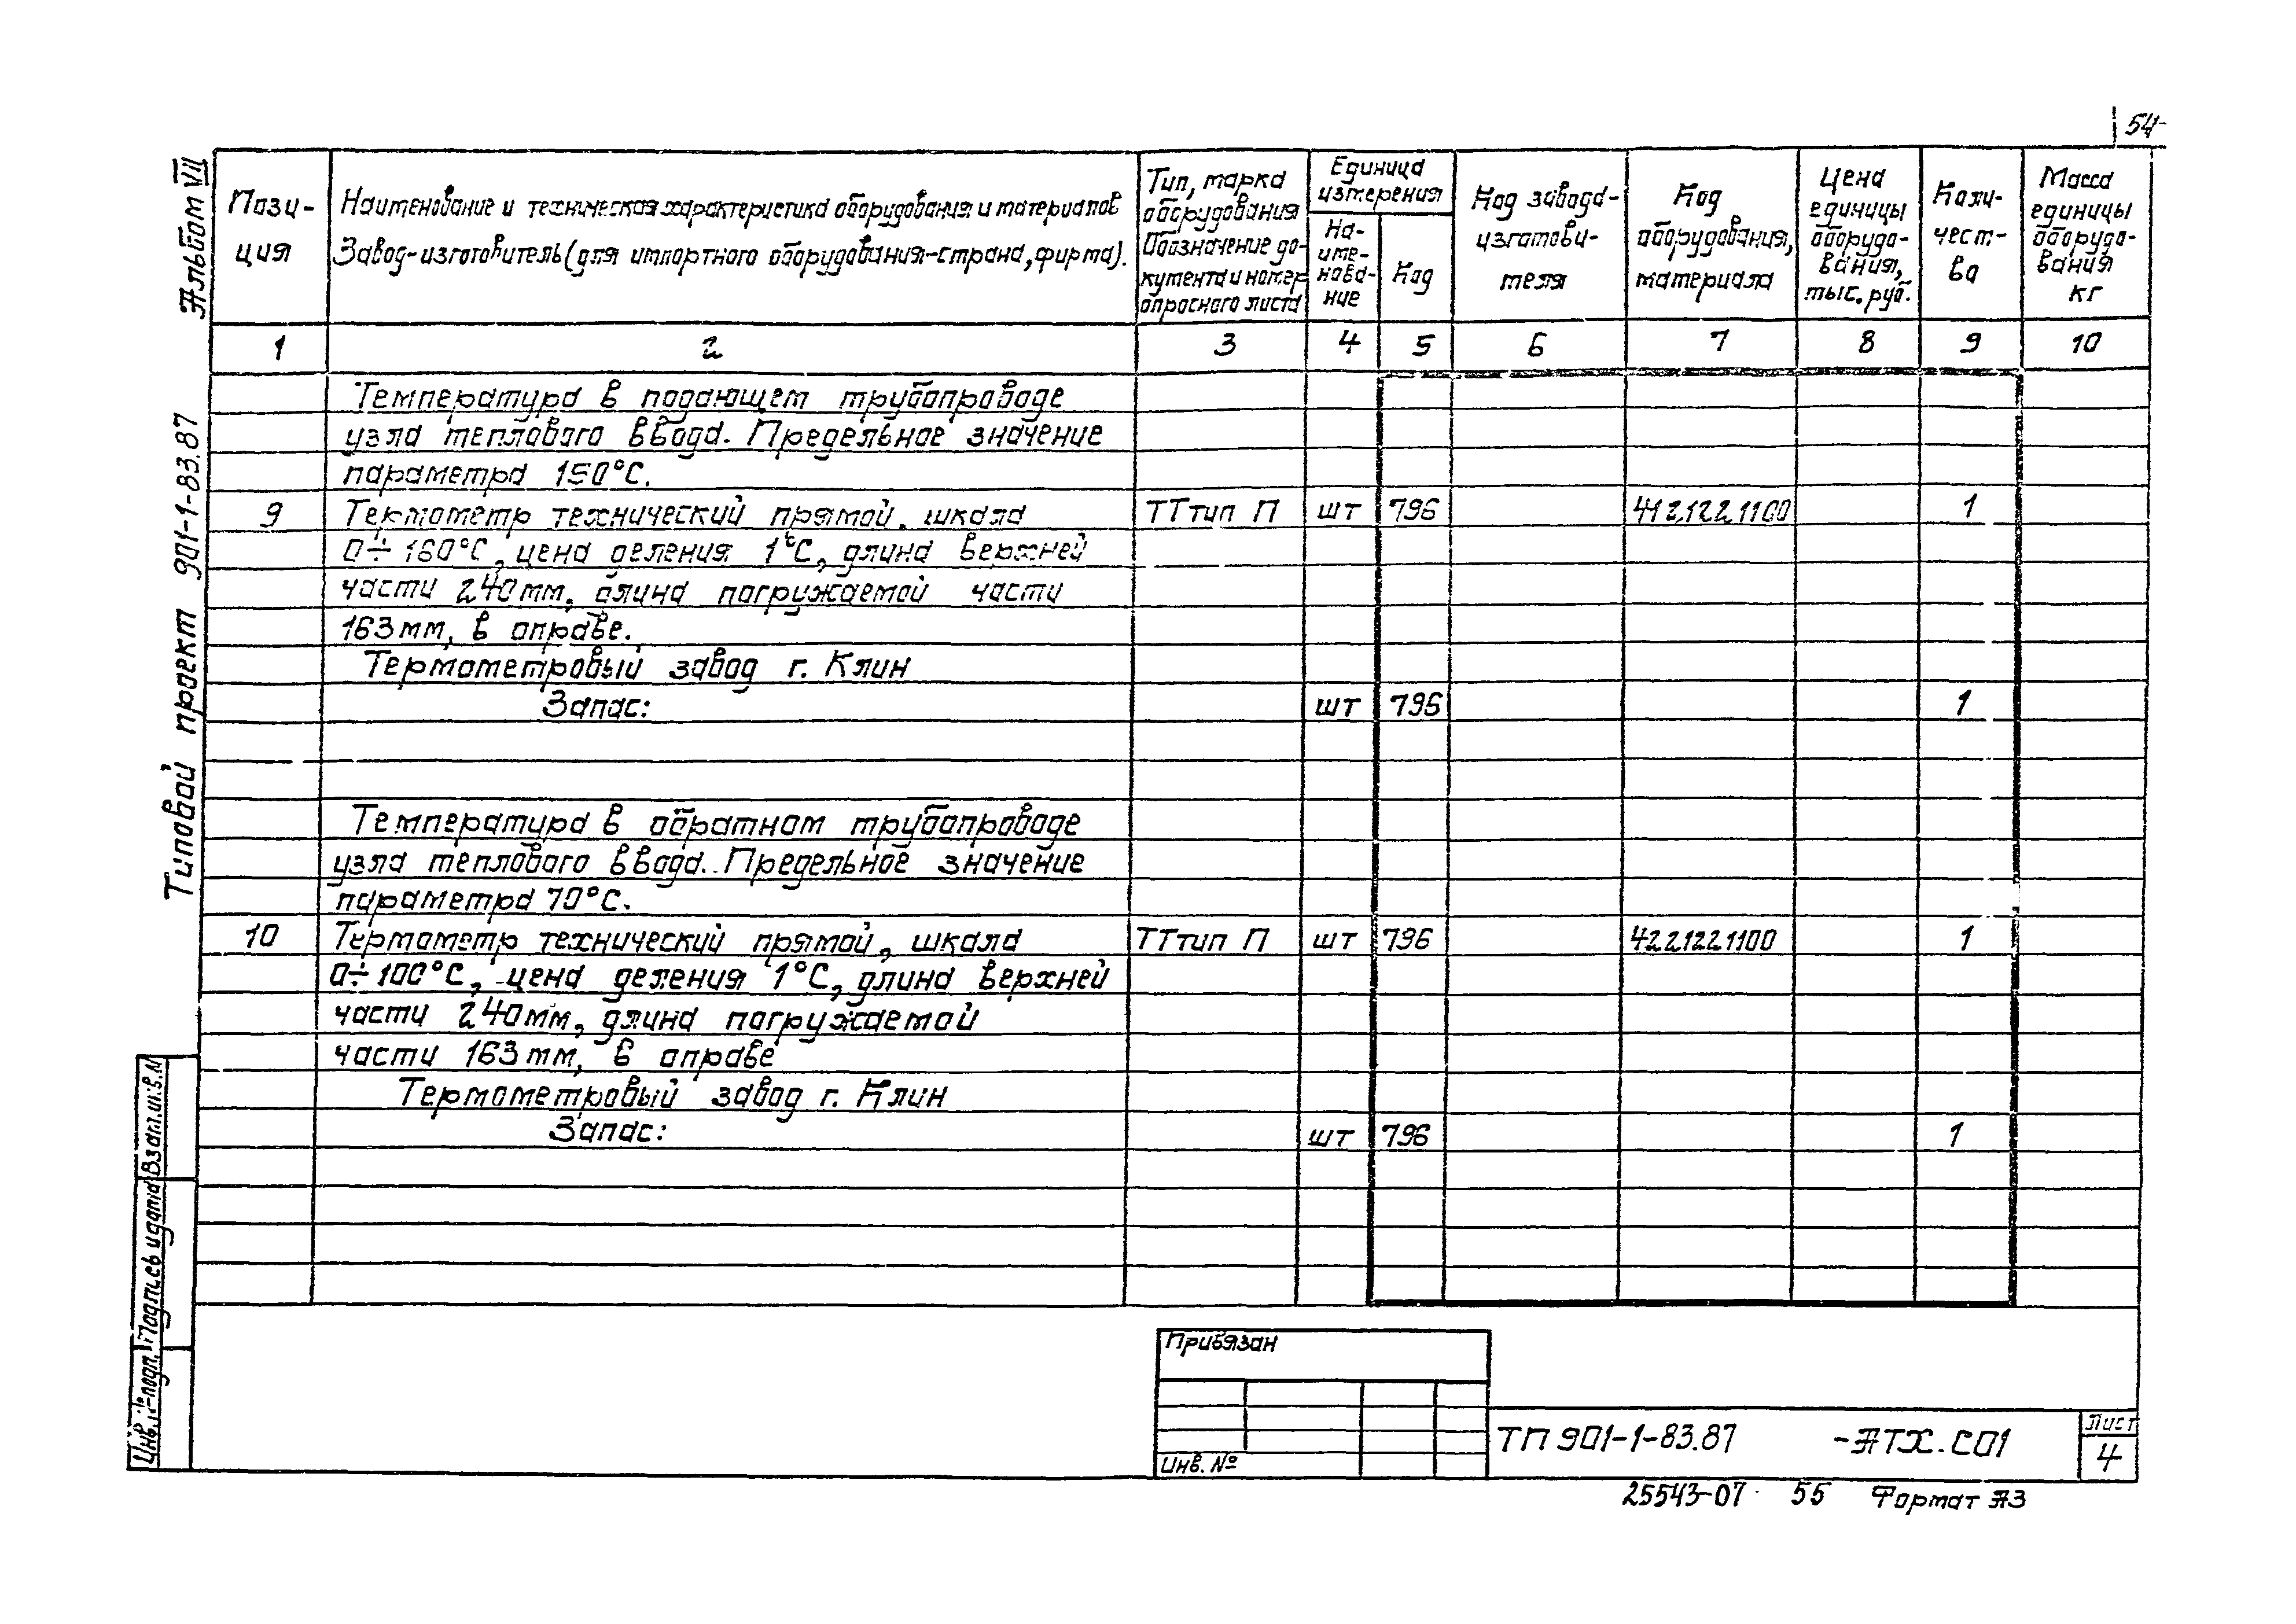 54
Альбом VII
Типовой проект 901-1-83.87
Пози-
ция
Наименование и техническая характеристика оборудования и материалов
Завод-изготовитель (для импортного оборудования-страна, фирма).
Тип, марка
оборудования
Обозначение до-
кумента и номер
опросного листа
Единица
измерения
На-
име-
нова-
ние
Код
Код завода-
изготови-
теля
Код
оборудования,
материала
Цена
единицы
оборудо-
вания,
тыс. руб.
Коли-
чест-
во
Масса
единицы
оборудо-
вания
кг
1 2 3 4 5 6 7 8 9 10
Температура в подающем трубопроводе
узла теплового ввода. Предельное значение
параметра 150°С.
9 Термометр технический прямой. шкала ТТ тип П шт 796 4121221100 1
0÷160°С, цена деления 1°С, длина верхней
части 240мм, длина погружаемой части
163мм, в оправе.
Термометровый завод г. Клин
Запас: шт 796 1
Температура в обратном трубопроводе
узла теплового ввода.. Предельное значение
параметра 70°С.
10 Термометр технический прямой, шкала ТТ тип П шт 796 4221221100 1
0÷100°С, цена деления 1°С, длина верхней
части 240мм, длина погружаемой
части 163мм, в оправе
Термометровый завод г. Клин
Запас: шт 796 1
Взам.инв.N
Подпись и дата
Инв.№подл.
Привязан
Инв. №
ТП 901-1-83.87 -АТХ.СО1
Лист
4
25543-07 55 Формат А3